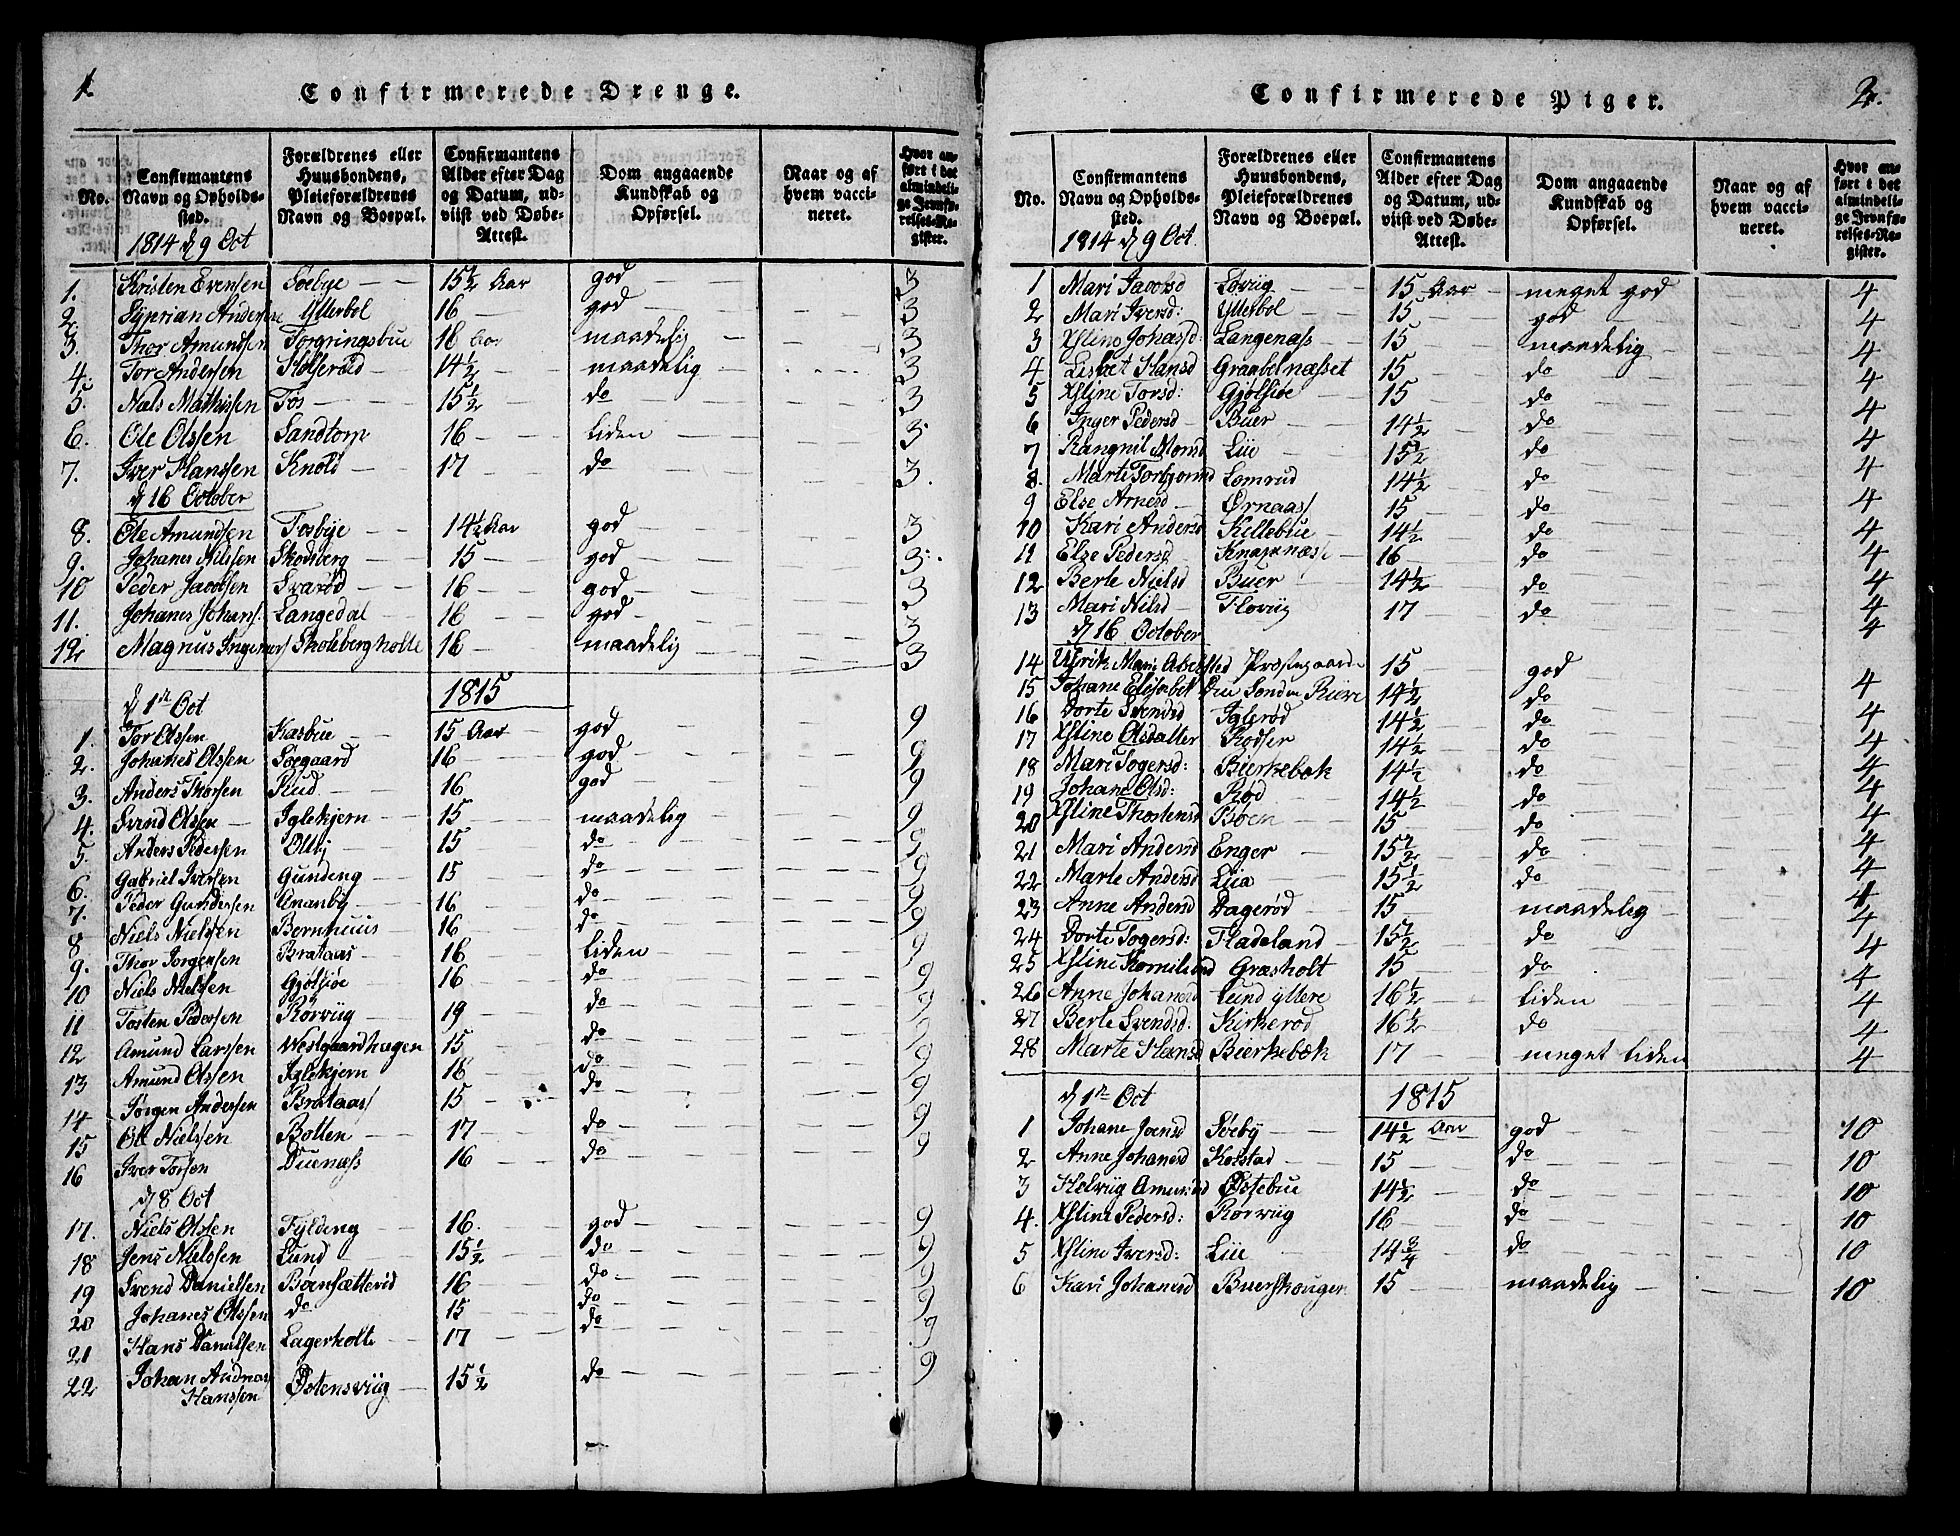 1.
Confirmerede Drenge.
No.
Confirmantens Navn og Opholdssted.
Forældrenes eller Huusbondens, Pleieforældrenes Navn og Boepæl.
Confirmantens Alder efter Dag og Datum, udviist ved Døbe-Attest.
Dom angaaende Kundskab og Opførsel.
Naar og af hvem vaccineret.
Hvor anført i det almindelige Jevnførelses-Register.
1814 d 9 Oct
1. Kristen Evensen Søebye 15½ Aar god 3
2. Syprian Andersne Ytterbøl 16 god 3
3. Thor Amundsen Torgringsbue 16 Aar maadelig 3
4. Tor Andersen Kølserød 14½ maadelig 3
5. Niels Mathissen Fos 15½ do 3
6. Ole Olssen Sandtorp 16 liden 3
7. Iver Hanssen Knold 17 do 3.
d 16 October
8. Ole Amundsen Fosbye 14½ Aar god 3
9. Johanes Nilssen Skodsberg 15 god 3
10 Peder Jacobsen Svarød 16 god 3
11. Johanes Johans. Langedal 16 god 3
12 Magnus Ingemer Skoleberg holte 16 maadelig 3
d 1ste Oct 1815
1. Tor Olssen Kasbue 15 Aar god 9
2. Johanes Olssen Søegaard 16 god 9
3. Anders Thorsen Rud 16 god 9
4. Svend Olsen Iglekjern 15 maadelig 9
5. Anders Pedersen Otteij 15 do 9
6. Gabriel Iversen Gundeng 15 do 9
7. Peder Gundersen Ananby 16 do 9
8 Niels Nielsen Bernhuus 16 do 9
9. Thor Jorgensen Brataas 16 liden 9
10 Niels Nielsen Gjølsiøe 16 do 9
11 Tosten Pedersen Rørviig 19 do 9
12 Amund Larssen Westgaardhagen 15 do 9
13 Amund Olssen Iglekjern 16 do 9
14 Jørgen Andersen Brataas 15 do 9
15 Ole Nielssen Bolten 17 do 9
16 Iver Torsen Duenæss 16 do 9
d 8 Oct
17. Niels Olssen Fylding 16. god 9
18 Jens Nielssen Lund 15½ do 9
19 Svend Danielsen Børnsætterød 16 do 9
20 Johanes Olssen do 15 do 9
21 Hans Danielsen Lagerholte 17 do 9
22 Johan Andreas Hanssen Østensviig 15½ do 9
2.
Confirmerede Piger.
No.
Confirmantens Navn og Opholdssted.
Forældrenes eller Huusbondens, Pleieforældrenes Navn og Boepæl.
Confirmantens Alder efter Dag og Datum, udviist ved Døbe-Attest.
Dom angaaende Kundskab og Opførsel.
Naar og af hvem vaccineret.
Hvor anført i det almindelige Jevnførelses-Register.
1814 d 9 Oct.
1 Mari Jacobsd Løviig 15 Aar meget god 4
2 Mari Iversd: Ytterbøl 15 god 4
3 Xstine Johasd: Langenæss 15 maadelig 4
4 Lisbet Hansd Graabelnæsset 15 do 4
5 Xstine Torsd: Gjølsiøe 15 do 4
6 Inger Pedersd Buer 14½ do 4
7 Rangnil Monsd Liie 15½ do 4
8. Marte Torbjørnsd Lomrud 14½ do 4
9 Else Arnesd Ørnaass 15 do 4
10 Kari Andersd Killebue 14½ do 4
11 Else Pedersd Knapnæss 16 do 4
12 Berte Nielsd Buer 14½ do 4
13 Mari Nilsd Floviig 17 do 4
d 16 October
14 Ulrik Marie Abelsted Præstegaarde 15 god 4
15 Johane Elisabet Due Søndre Riiere 14½ do 4
16 Dorte Svendsd Iglerød 14½ do 4
17 Xstine Olsdatter Kodser 14½ do 4
18 Mari Togersd: Bierkebæk 14½ do 4
19 Johane Olsd: Rød 14½ do 4
20 Xstine Thostensd Bøen 15 do 4
21 Mari Andersd Enger 15½ do 4
22 Marte Andersd Liia 15½ do 4
23 Anne Andersd Dagerød 15 maadelig 4
24 Dorte Togersd: Fladeland 15½ do 4
25 Xstine Komiliend Græsholt 15 do 4
26 Anne Johanesd Lund yttere 16½ liden 4
27 Berte Svendsd. Kirkerød 16½ do 4
28 Marte Hansd Bierkebæk 17 meget liden 4
d 1ste Oct 1815
1 Johane Joensd Søeby 14½ Aar god 10
2 Anne Johanesd Kolstad 15 do 10
3 Helviig Amundsd Østebue 14½ do 10
4. Xstine Pedersd: Rørviig 16 do 10
5 Xstine Iversd: Liie 14¾ do 10
6 Kari Johanesd Buerskougen 15 maadelig 10